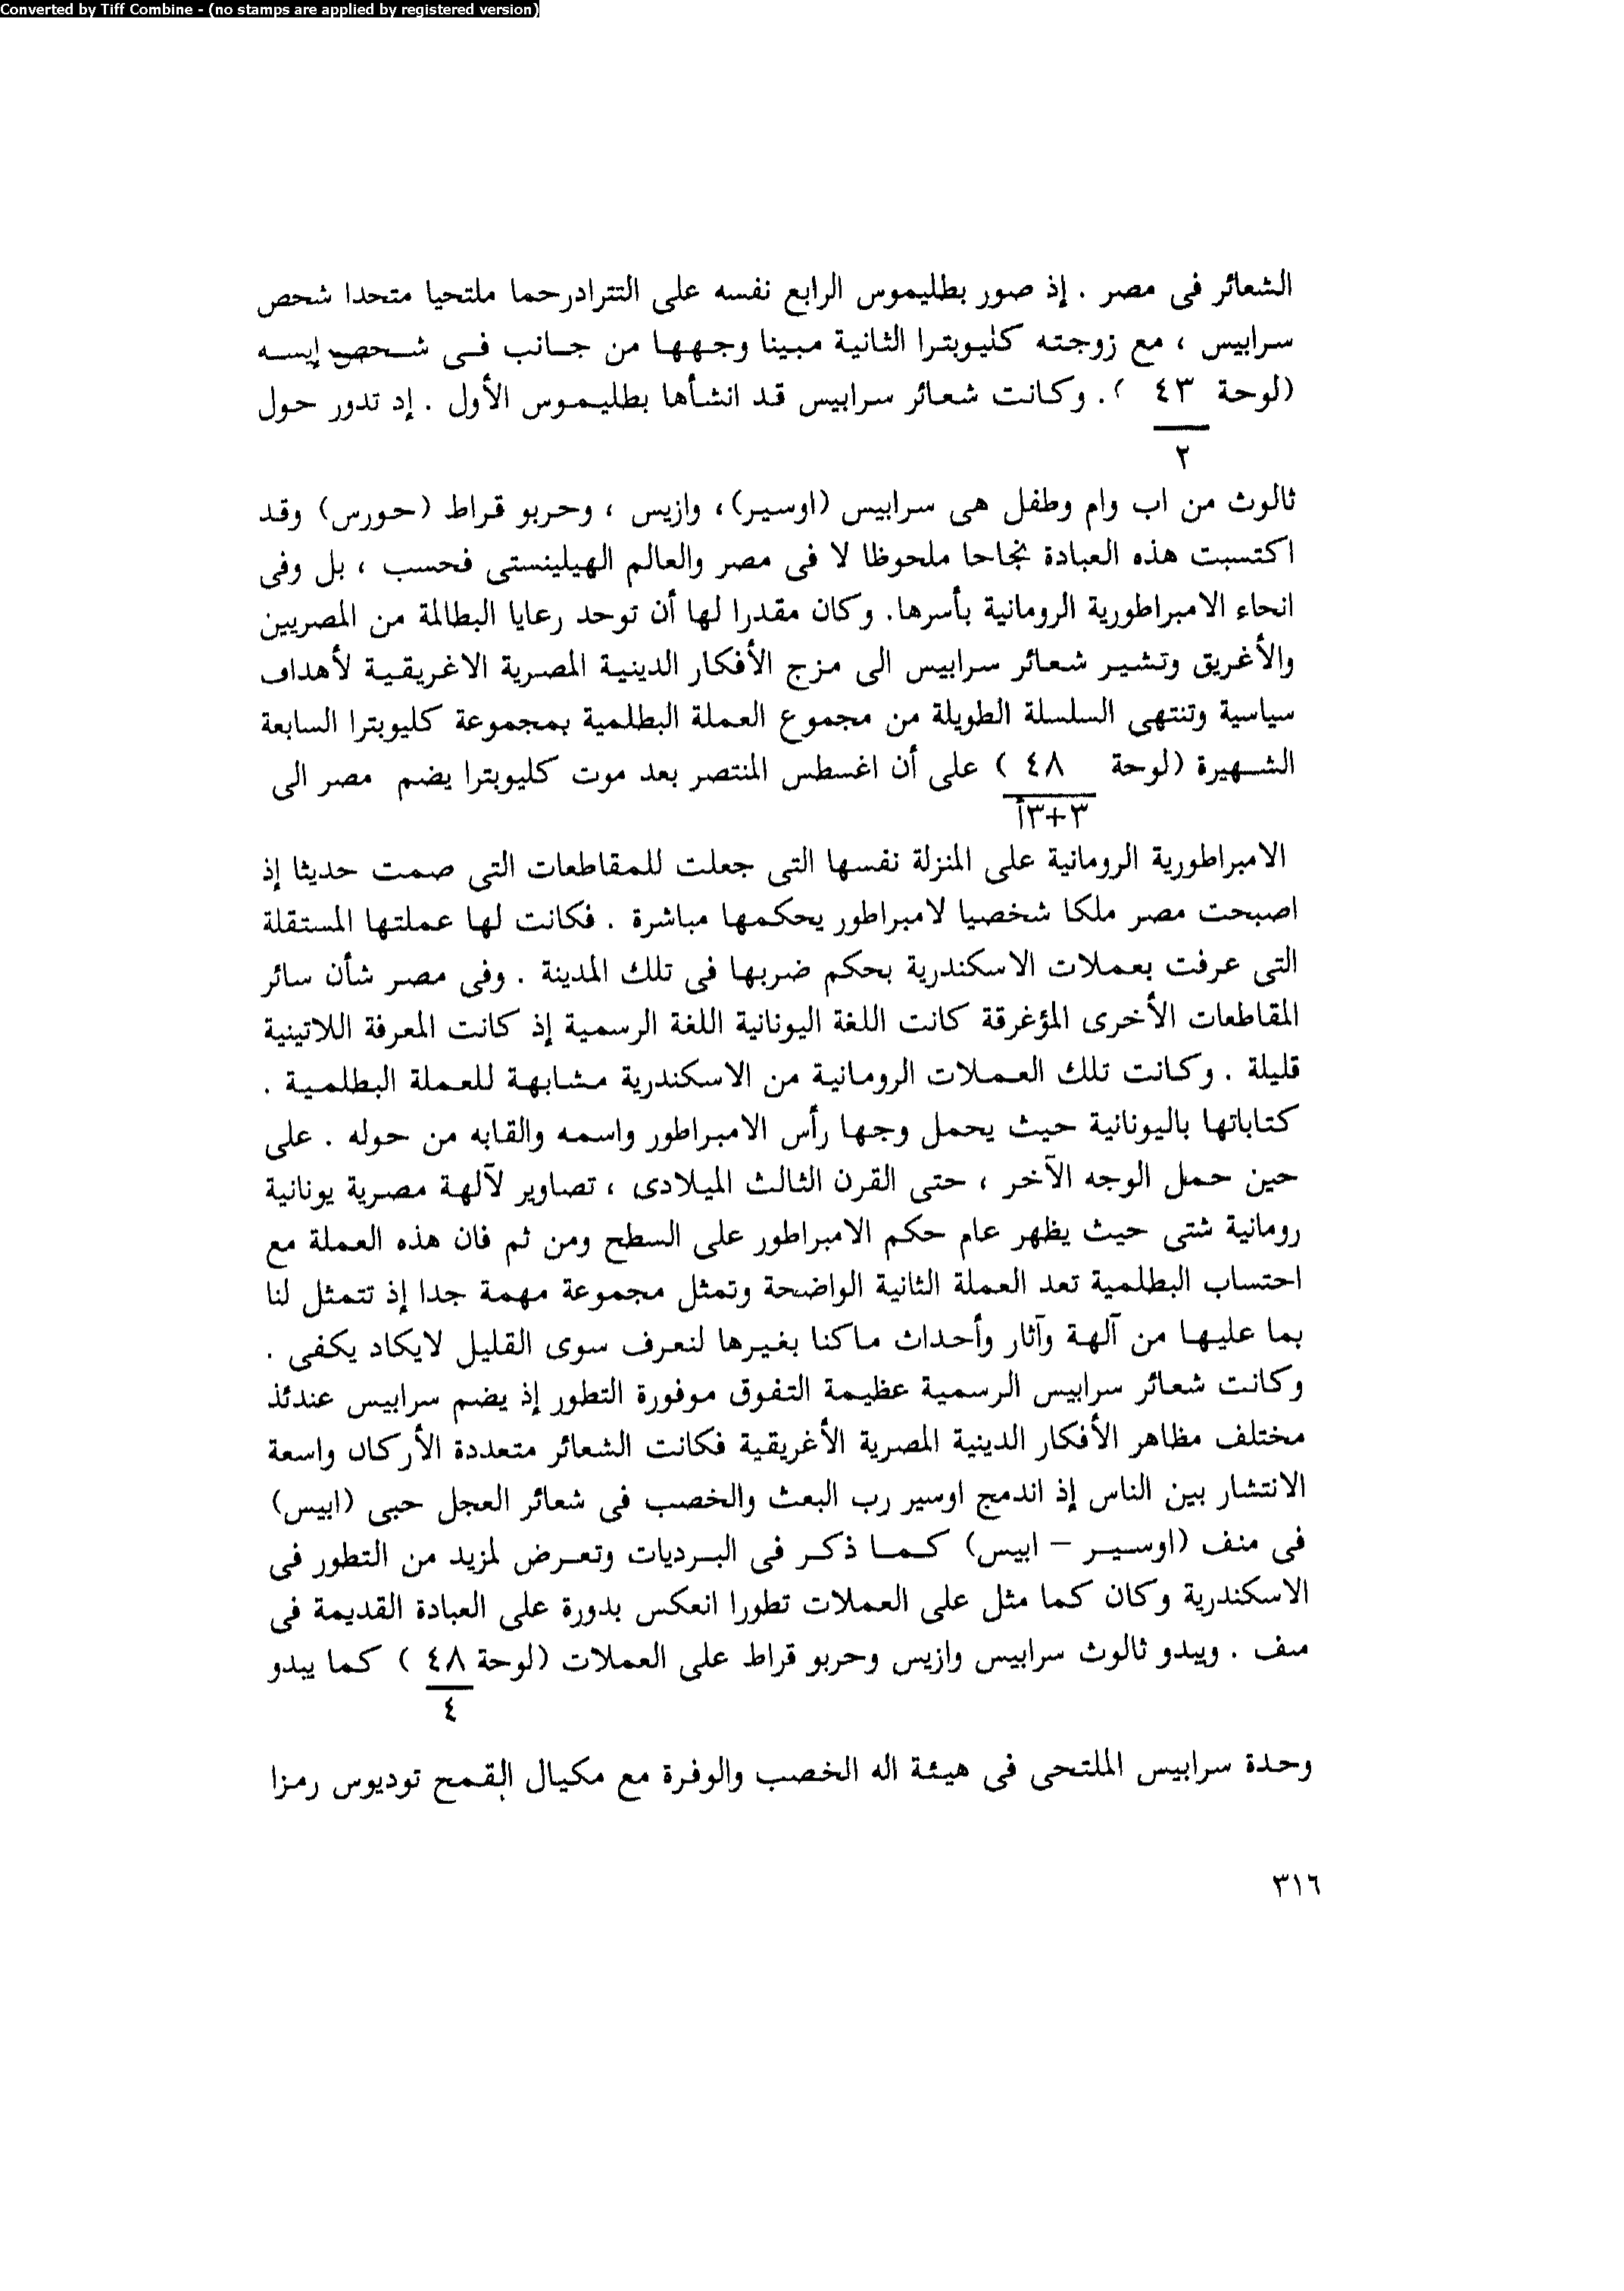 Converted by Tiff Combine - (no stamps are applied by registered version)
الشعائر فى مصر . إذ صور بطليموس الرابع نفسه على التترادرحما ملتحيا متحدا شحص
سرابيس ، مع زوجته كليوبترا الثانية مبينا وجهها من جانب فى شحص إيسه
(لوحة ٤٣ ) . وكانت شعائر سرابيس قد انشأها بطليموس الأول . إد تدور حول
٢
ثالوث من اب وام وطفل هى سرابيس (اوسير)، وازيس ، وحربو قراط (حورس) وقد
اكتسبت هذه العبادة نجاحا ملحوظا لا فى مصر والعالم الهيلينستى فحسب ، بل وفى
انحاء الامبراطورية الرومانية بأسرها. وكان مقدرا لها أن توحد رعايا البطالمة من المصريين
والأغريق وتشير شعائر سرابيس الى مزج الأفكار الدينية المصرية الاغريقية لأهداف
سياسية وتنتهى السلسلة الطويلة من مجموع العملة البطلمية بمجموعة كليوبترا السابعة
الشهيرة (لوحة ٤٨ ) على أن اغسطس المنتصر بعد موت كليوبترا يضم مصر الى
٣+٣أ
الامبراطورية الرومانية على المنزلة نفسها التى جعلت للمقاطعات التى صمت حديثا إذ
اصبحت مصر ملكا شخصيا لامبراطور يحكمها مباشرة . فكانت لها عملتها المستقلة
التى عرفت بعملات الاسكندرية بحكم ضربها فى تلك المدينة . وفى مصر شأن سائر
المقاطعات الأخرى المؤغرقة كانت اللغة اليونانية اللغة الرسمية إذ كانت المعرفة اللاتينية
قليلة . وكانت تلك العملات الرومانية من الاسكندرية مشابهة للعملة البطلمية .
كتاباتها باليونانية حيث يحمل وجها رأس الامبراطور واسمه والقابه من حوله . على
حين حمل الوجه الآخر ، حتى القرن الثالث الميلادى ، تصاوير لآلهة مصرية يونانية
رومانية شتى حيث يظهر عام حكم الامبراطور على السطح ومن ثم فان هذه العملة مع
احتساب البطلمية تعد العملة الثانية الواضحة وتمثل مجموعة مهمة جدا إذ تتمثل لنا
بما عليها من آلهة وآثار وأحداث ماكنا بغيرها لنعرف سوى القليل لايكاد يكفى .
وكانت شعائر سرابيس الرسمية عظيمة التفوق موفورة التطور إذ يضم سرابيس عندئذ
مختلف مظاهر الأفكار الدينية المصرية الأغريقية فكانت الشعائر متعددة الأركان واسعة
الانتشار بين الناس إذ اندمج اوسير رب البعث والخصب فى شعائر العجل حبى (ابيس)
فى منف (اوسير - ابيس) كما ذكر فى البرديات وتعرض لمزيد من التطور فى
الاسكندرية وكان كما مثل على العملات تطورا انعكس بدورة على العبادة القديمة فى
منف . ويبدو ثالوث سرابيس وازيس وحربو قراط على العملات (لوحة ٤٨ ) كما يبدو
٤
وحدة سرابيس الملتحى فى هيئة اله الخصب والوفرة مع مكيال القمح توديوس رمزا
٣١٦